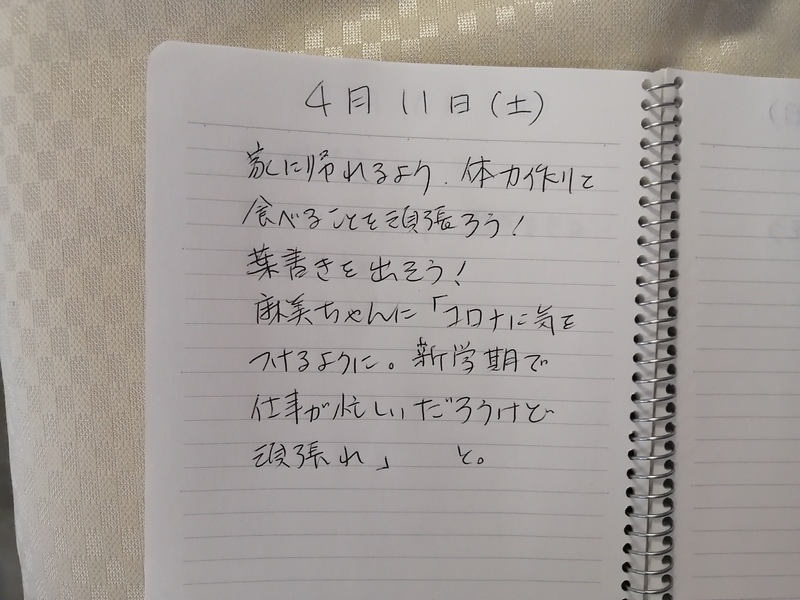 4月11日(土)
家に帰れるよう、体力作りと
食べることを頑張ろう!
葉書きを出そう!
麻美ちゃんに「コロナに気を
つけるように。新学期で
仕事が忙しいだろうけど
頑張れ」 と。